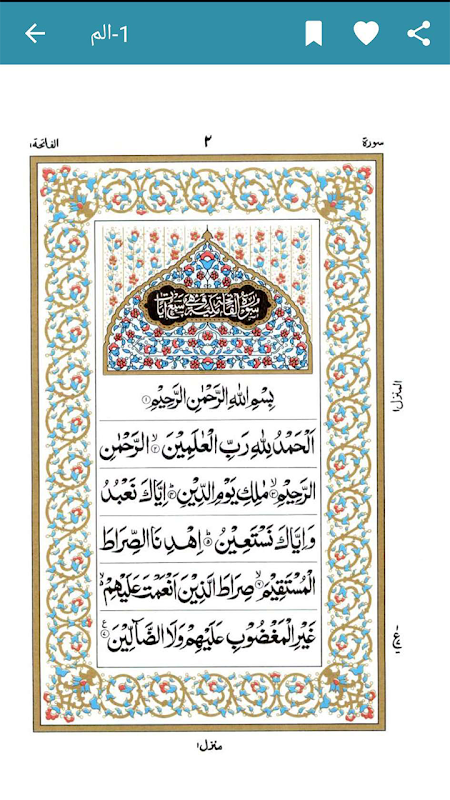 1-الم
سورة ٢ الفاتحة ١
سورة الفاتحة مكية وهي سبع آيات
بِسْمِ اللهِ الرَّحْمٰنِ الرَّحِيْمِ ۝١
اَلْحَمْدُ لِلّٰهِ رَبِّ الْعٰلَمِيْنَ ۙ۝٢ الرَّحْمٰنِ
الرَّحِيْمِ ۙ۝٣ مٰلِكِ يَوْمِ الدِّيْنِ ؕ۝٤ اِيَّاكَ نَعْبُدُ
وَاِيَّاكَ نَسْتَعِيْنُ ؕ۝٥ اِهْدِنَا الصِّرَاطَ
الْمُسْتَقِيْمَ ۙ۝٦ صِرَاطَ الَّذِيْنَ اَنْعَمْتَ عَلَيْهِمْ ۙ
غَيْرِ الْمَغْضُوْبِ عَلَيْهِمْ وَلَا الضَّآلِّيْنَ ۝٧ ع
المنزل ١
منزل ١